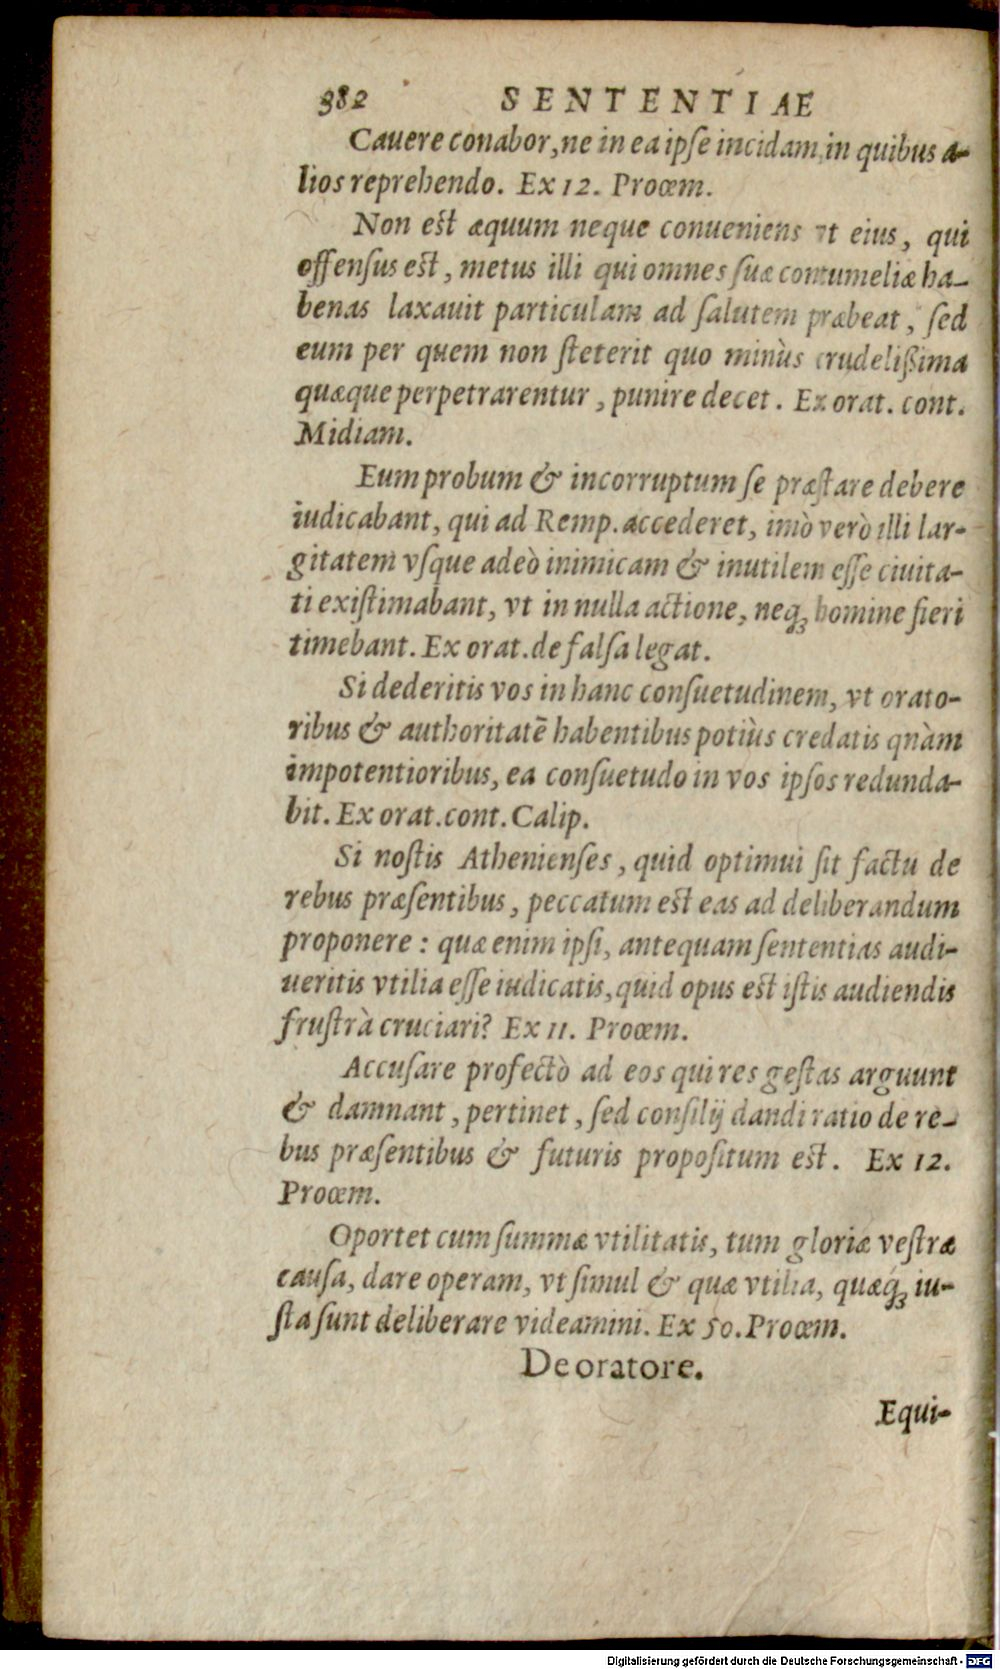 382 SENTENTIAE
Cauere conabor, ne in ea ipſe incidam, in quibus a-
lios reprehendo. Ex 12. Proœm.
Non est æquum neque conueniens vt eius, qui
offenſus est, metus illi qui omnes ſuæ contumeliæ ha-
benas laxauit particulam ad ſalutem præbeat, ſed
eum per quem non ſteterit quo minùs crudelißima
quæque perpetrarentur, punire decet. Ex orat. cont.
Midiam.
Eum probum & incorruptum ſe præſtare debere
iudicabant, qui ad Remp. accederet, imò verò illi lar-
gitatem vſque adeò inimicam & inutilem eſſe ciuita-
ti exiſtimabant, vt in nulla actione, neq; homine fieri
timebant. Ex orat. de falſa legat.
Si dederitis vos in hanc conſuetudinem, vt orato-
ribus & authoritatē habentibus potiùs credatis qnàm
impotentioribus, ea conſuetudo in vos ipſos redunda-
bit. Ex orat. cont. Calip.
Si noſtis Athenienſes, quid optimui ſit factu de
rebus præſentibus, peccatum est eas ad deliberandum
proponere: quæ enim ipſi, antequam ſententias audi-
ueritis vtilia eſſe iudicatis, quid opus est iſtis audiendis
fruſtrà cruciari? Ex 11. Proœm.
Accuſare profectò ad eos qui res geſtas arguunt
& damnant, pertinet, ſed conſilij dandi ratio de re-
bus præſentibus & futuris propoſitum est. Ex 12.
Proœm.
Oportet cum ſummæ vtilitatis, tum gloriæ veſtræ
cauſa, dare operam, vt ſimul & quæ vtilia, quæq; iu-
ſta ſunt deliberare videamini. Ex 50. Proœm.
De oratore.
Equi-
Digitalisierung gefördert durch die Deutsche Forschungsgemeinschaft - DFG